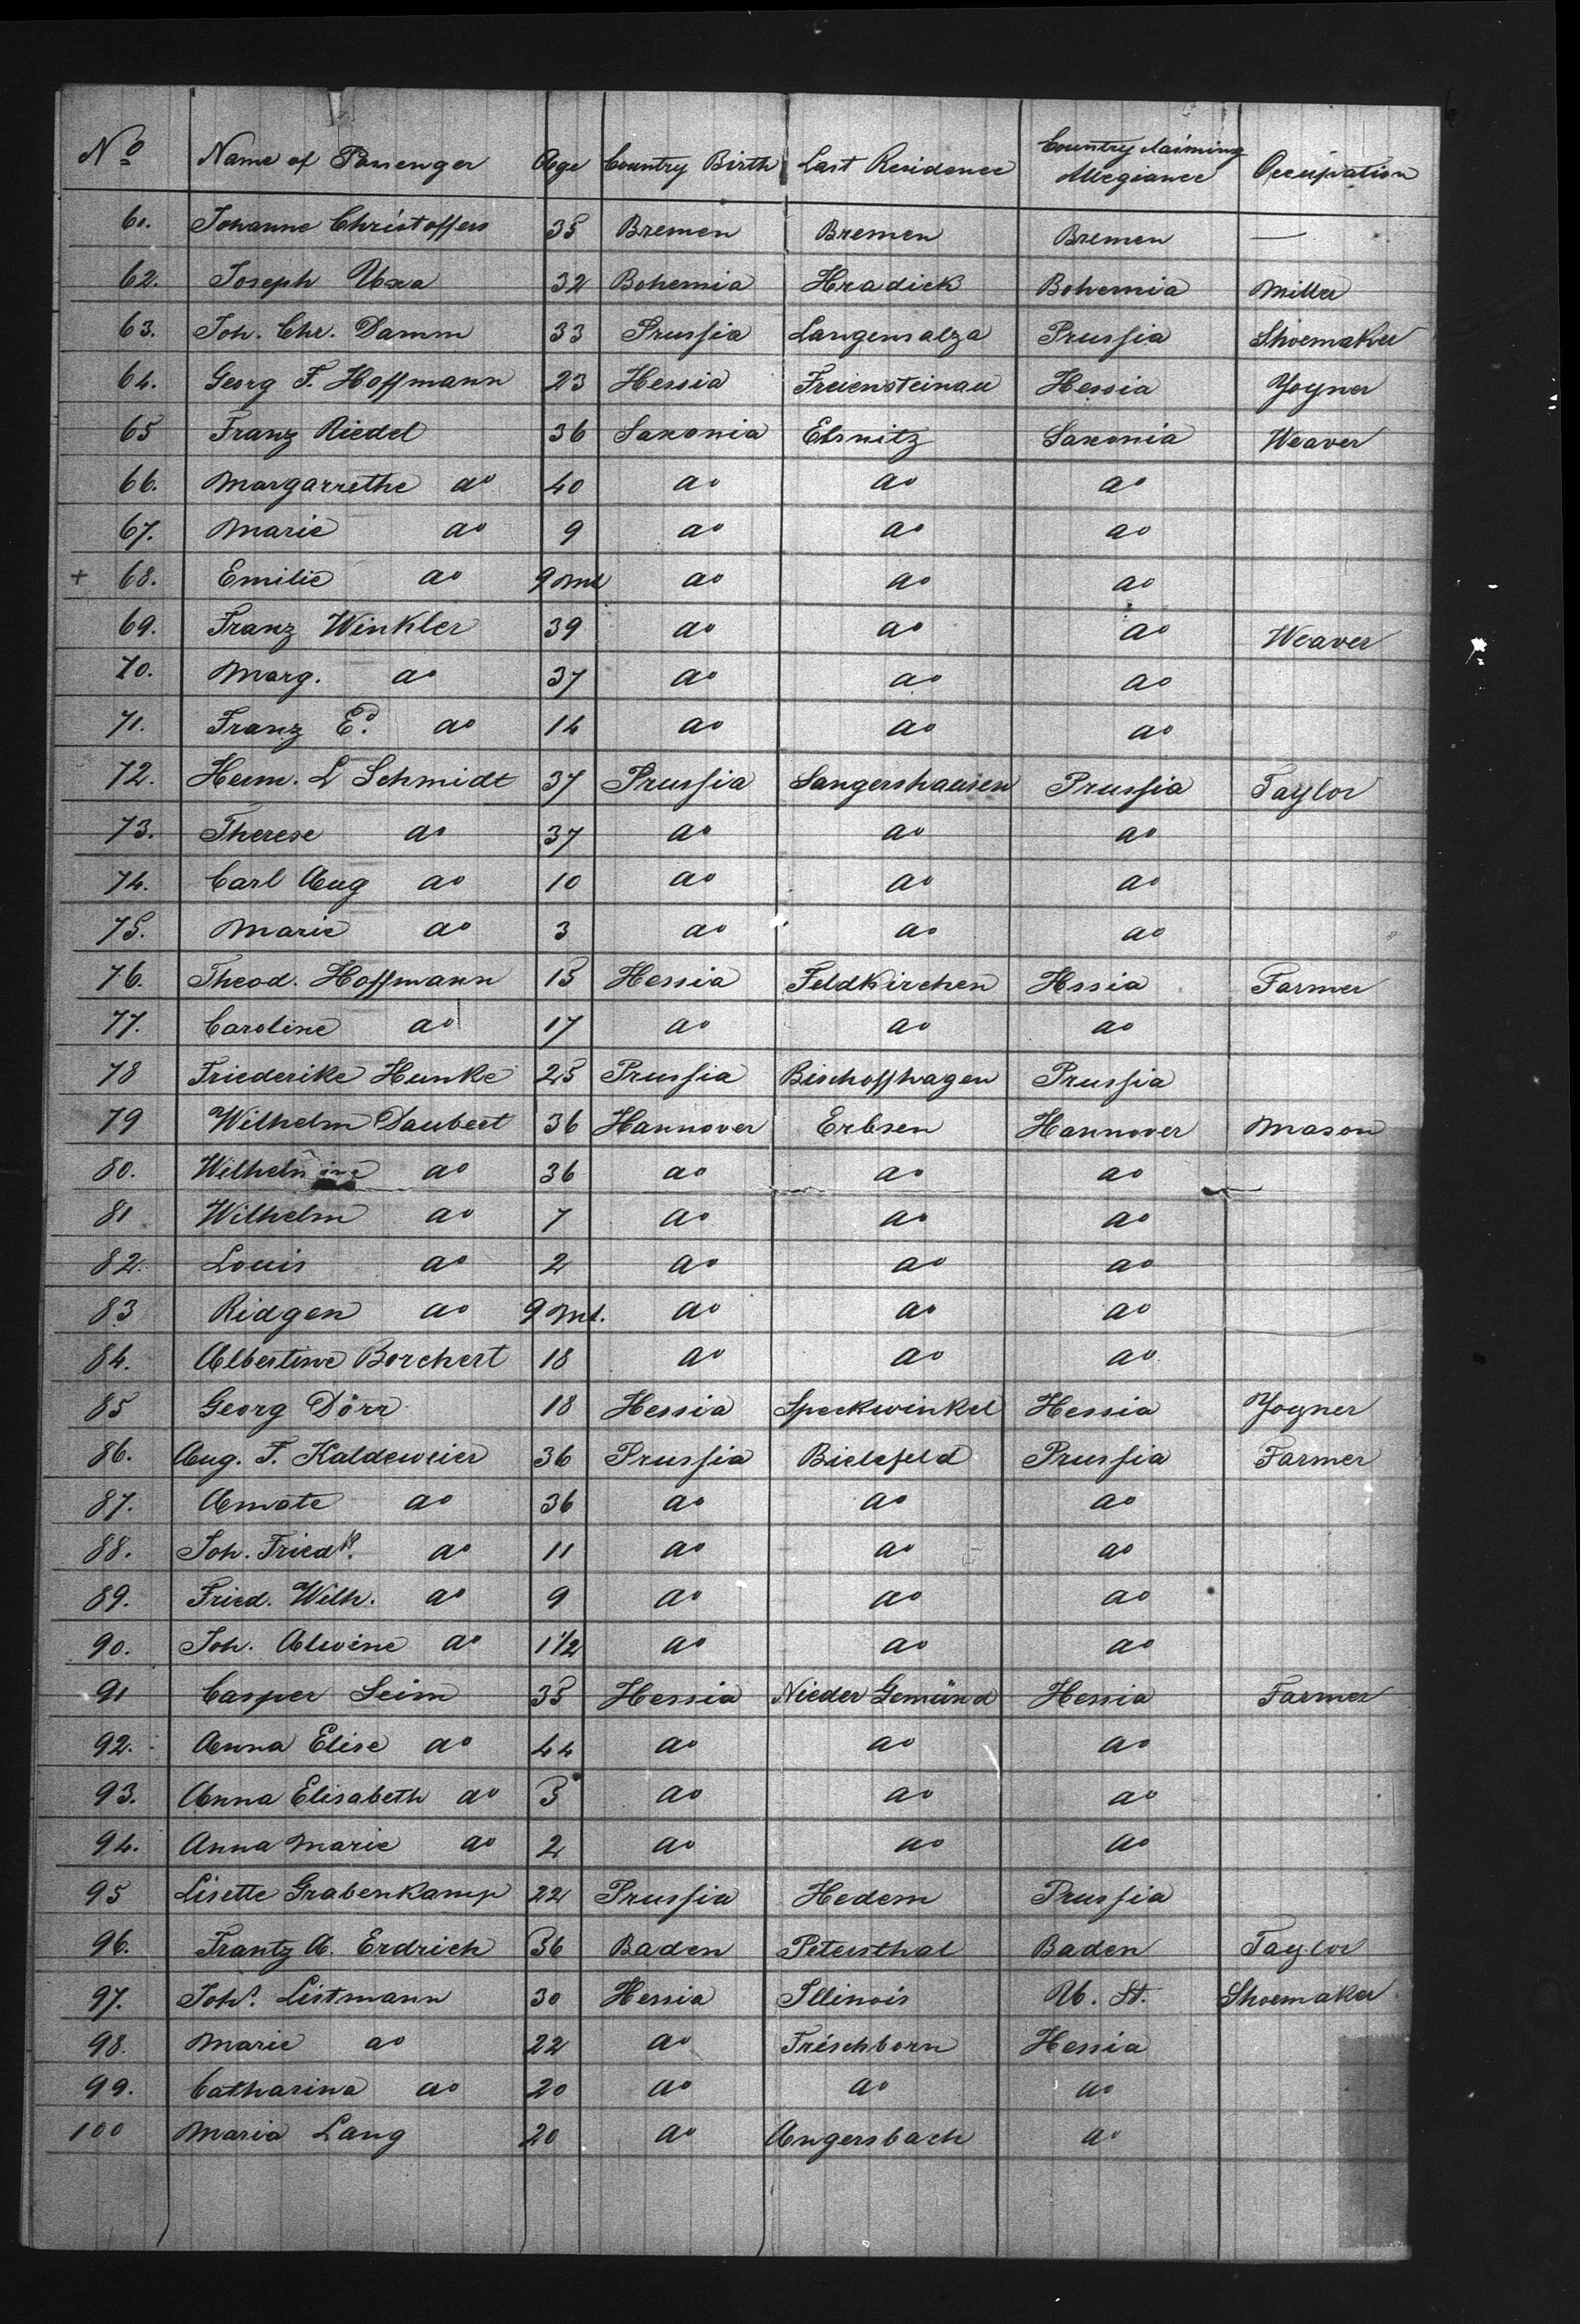 No Name of Passenger Age Country Birth Last Residence Country claiming Allegiance Occupation
61. Johanne Christoffers 35 Bremen Bremen Bremen —
62. Joseph Uxa 32 Bohemia Hradick Bohemia Miller
63. Joh. Chr. Damm 33 Prussia Langensalza Prussia Shoemaker
64. Georg F. Hoffmann 23 Hessia Freiensteinau Hessia Yoyner
65 Franz Riedel 36 Saxonia Elsnitz Saxonia Weaver
66. Margarrethe do 40 do do do
67. Marie do 9 do do do
+ 68. Emilie do 9 Mt do do do
69. Franz Winkler 39 do do do Weaver
70. Marg. do 37 do do do
71. Franz Ed. do 14 do do do
72. Herm. L Schmidt 37 Prussia Sangershausen Prussia Taylor
73. Therese do 37 do do do
74. Carl Aug do 10 do do do
75. Marie do 3 do do do
76. Theod. Hoffmann 15 Hessia Feldkirchen Hssia Farmer
77. Caroline do 17 do do do
78 Friederike Hunke 25 Prussia Bischoffhagen Prussia
79 Wilhelm Daubert 36 Hannover Erbsen Hannover Mason
80. Wilhelmine do 36 do do do
81 Wilhelm do 7 do do do
82. Louis do 2 do do do
83 Ridgen do 9 Mt. do do do
84. Albertine Borchert 18 do do do
85 Georg Dörr 18 Hessia Speckwinkel Hessia Yoyner
86. Aug. F. Kaldeweier 36 Prussia Bielefeld Prussia Farmer
87. do 36 do do do
88. Joh. Friedr. do 11 do do do
89. Fried. Wilh. do 9 do do do
90. Joh. Alwine do 1 1/2 do do do
91 Casper Seim 35 Hessia Nieder Gemünd Hessia Farmer
92. Anna Elise do 44 do do do
93. Anna Elisabeth do 5 do do do
94. Anna Marie do 2 do do do
95 Lisette Grabenkamp 22 Prussia Hedem Prussia
96. Frantz A. Erdrich 36 Baden Petersthal Baden Taylor
97. Johs. Listmann 30 Hessia Illinois U. St. Shoemaker
98. Marie do 22 do Frischborn Hessia
99. Catharina do 20 do do do
100 Maria Lang 20 do Angersbach do